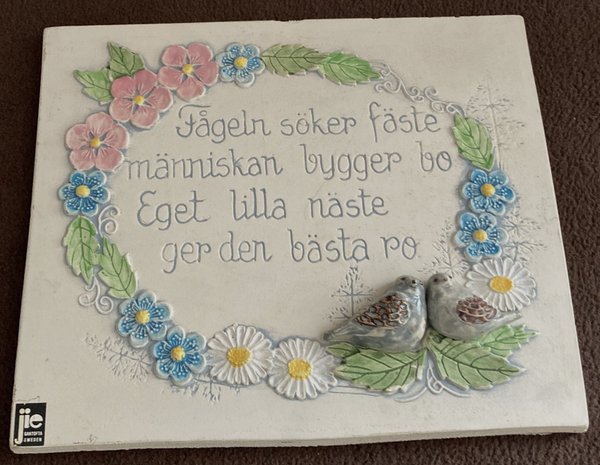 Fågeln söker fäste
människan bygger bo
Eget lilla näste
ger den bästa ro
jie
GANTOFTA
SWEDEN